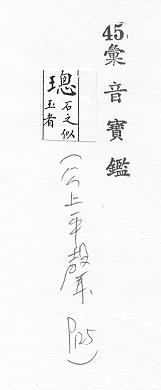 45.彙音寶鑑
璁 石之似玉者
(公上平聲 P125)